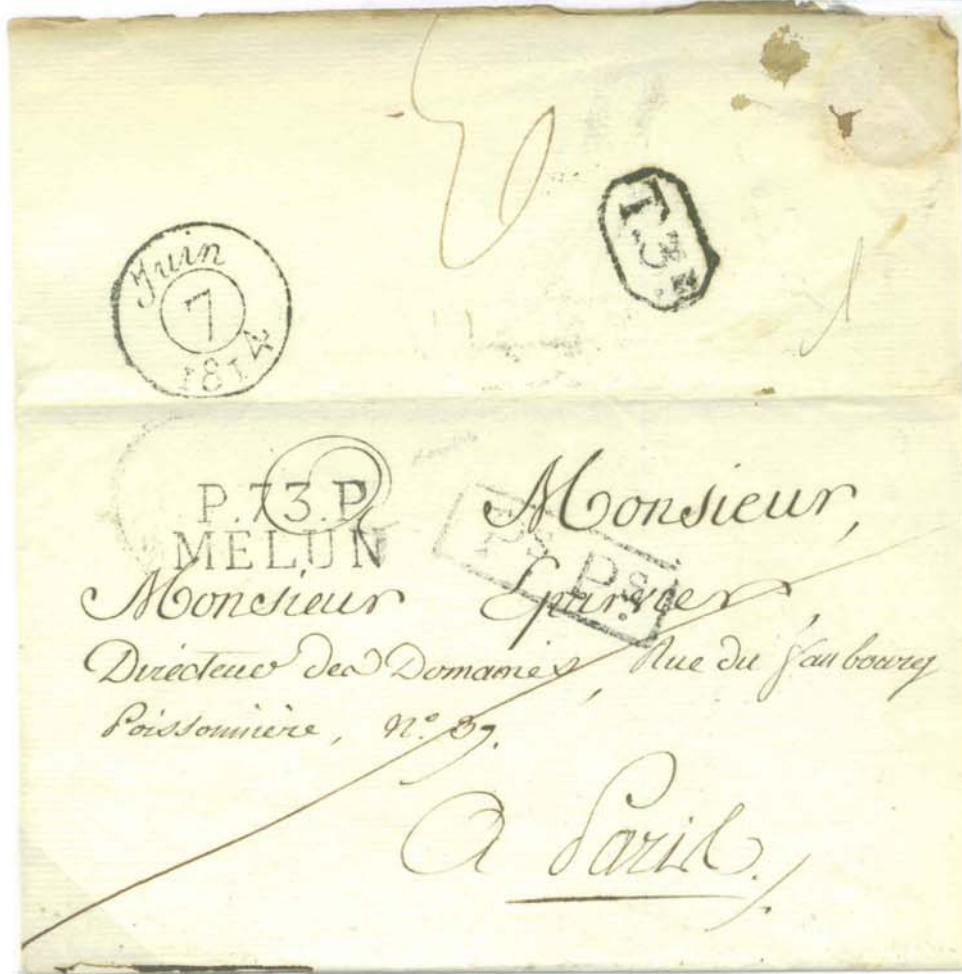 T.3e
Juin
7
1814
P.73.P
MELUN
Ps. Ps.
Monsieur,
Monsieur Eparvier,
Directeur des Domaines, Rue du faubourg
Poissonnière, N.º 39.
A Paris.